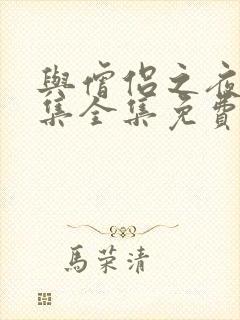 與僧侶之夜
集全集免費
馬荣清